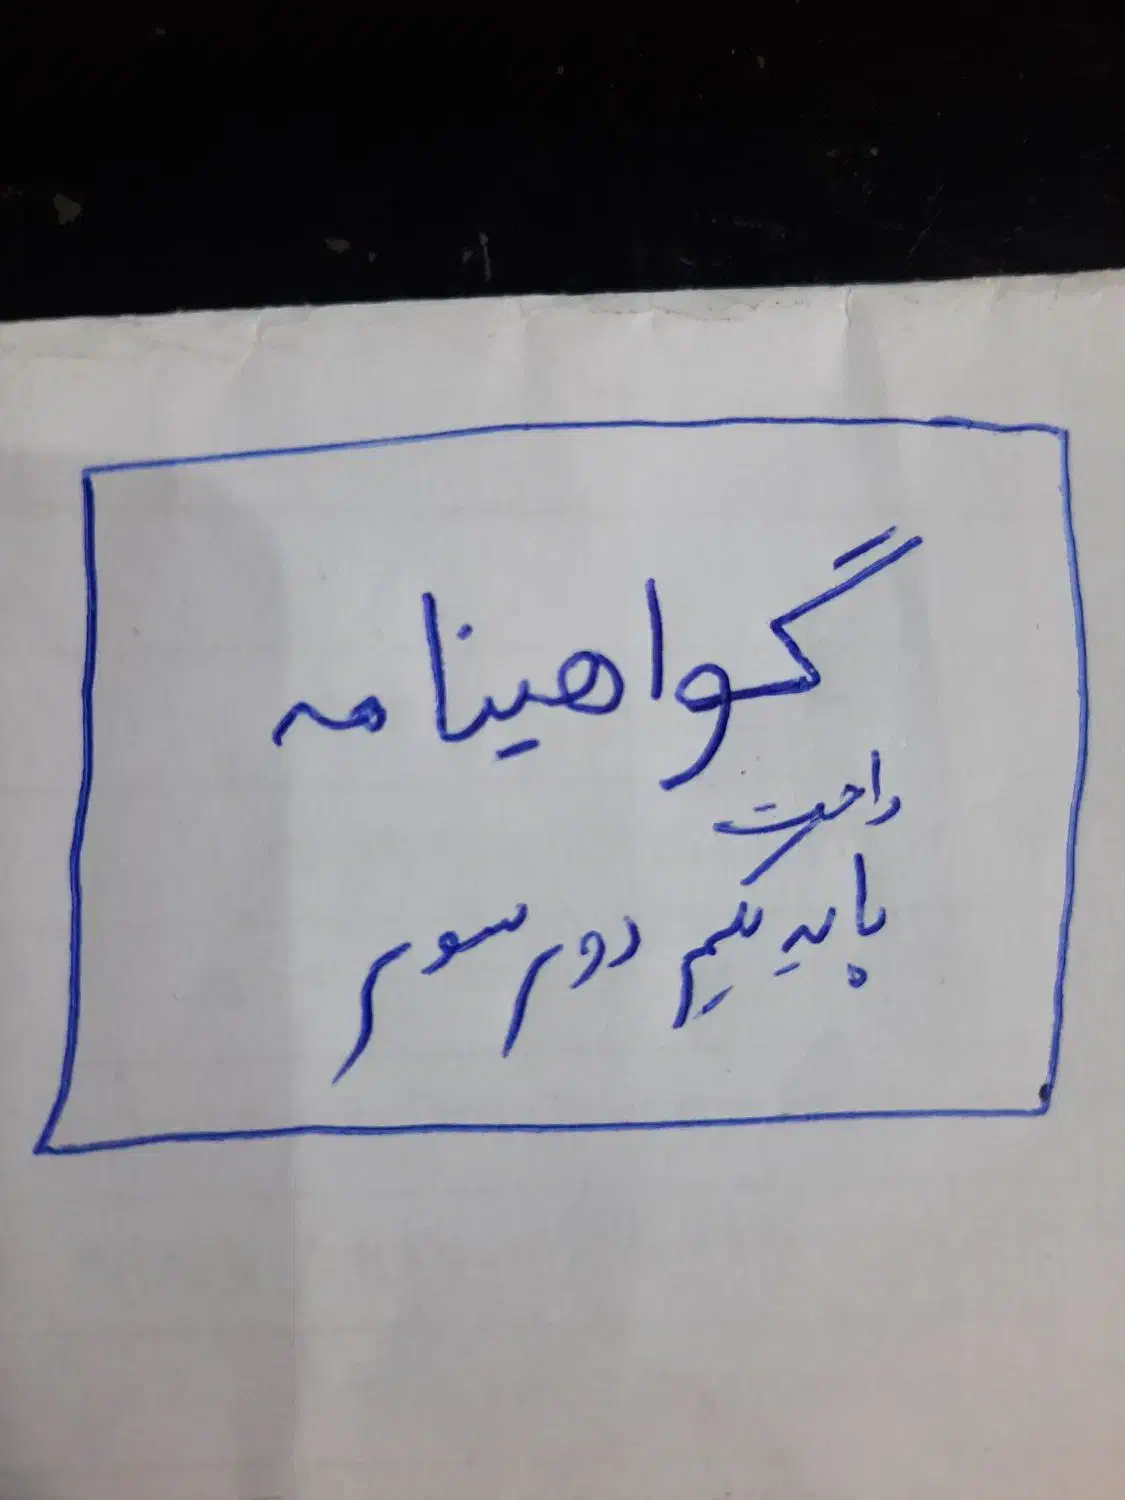 گواهینامه
راحت
پایه یکم دوم سوم